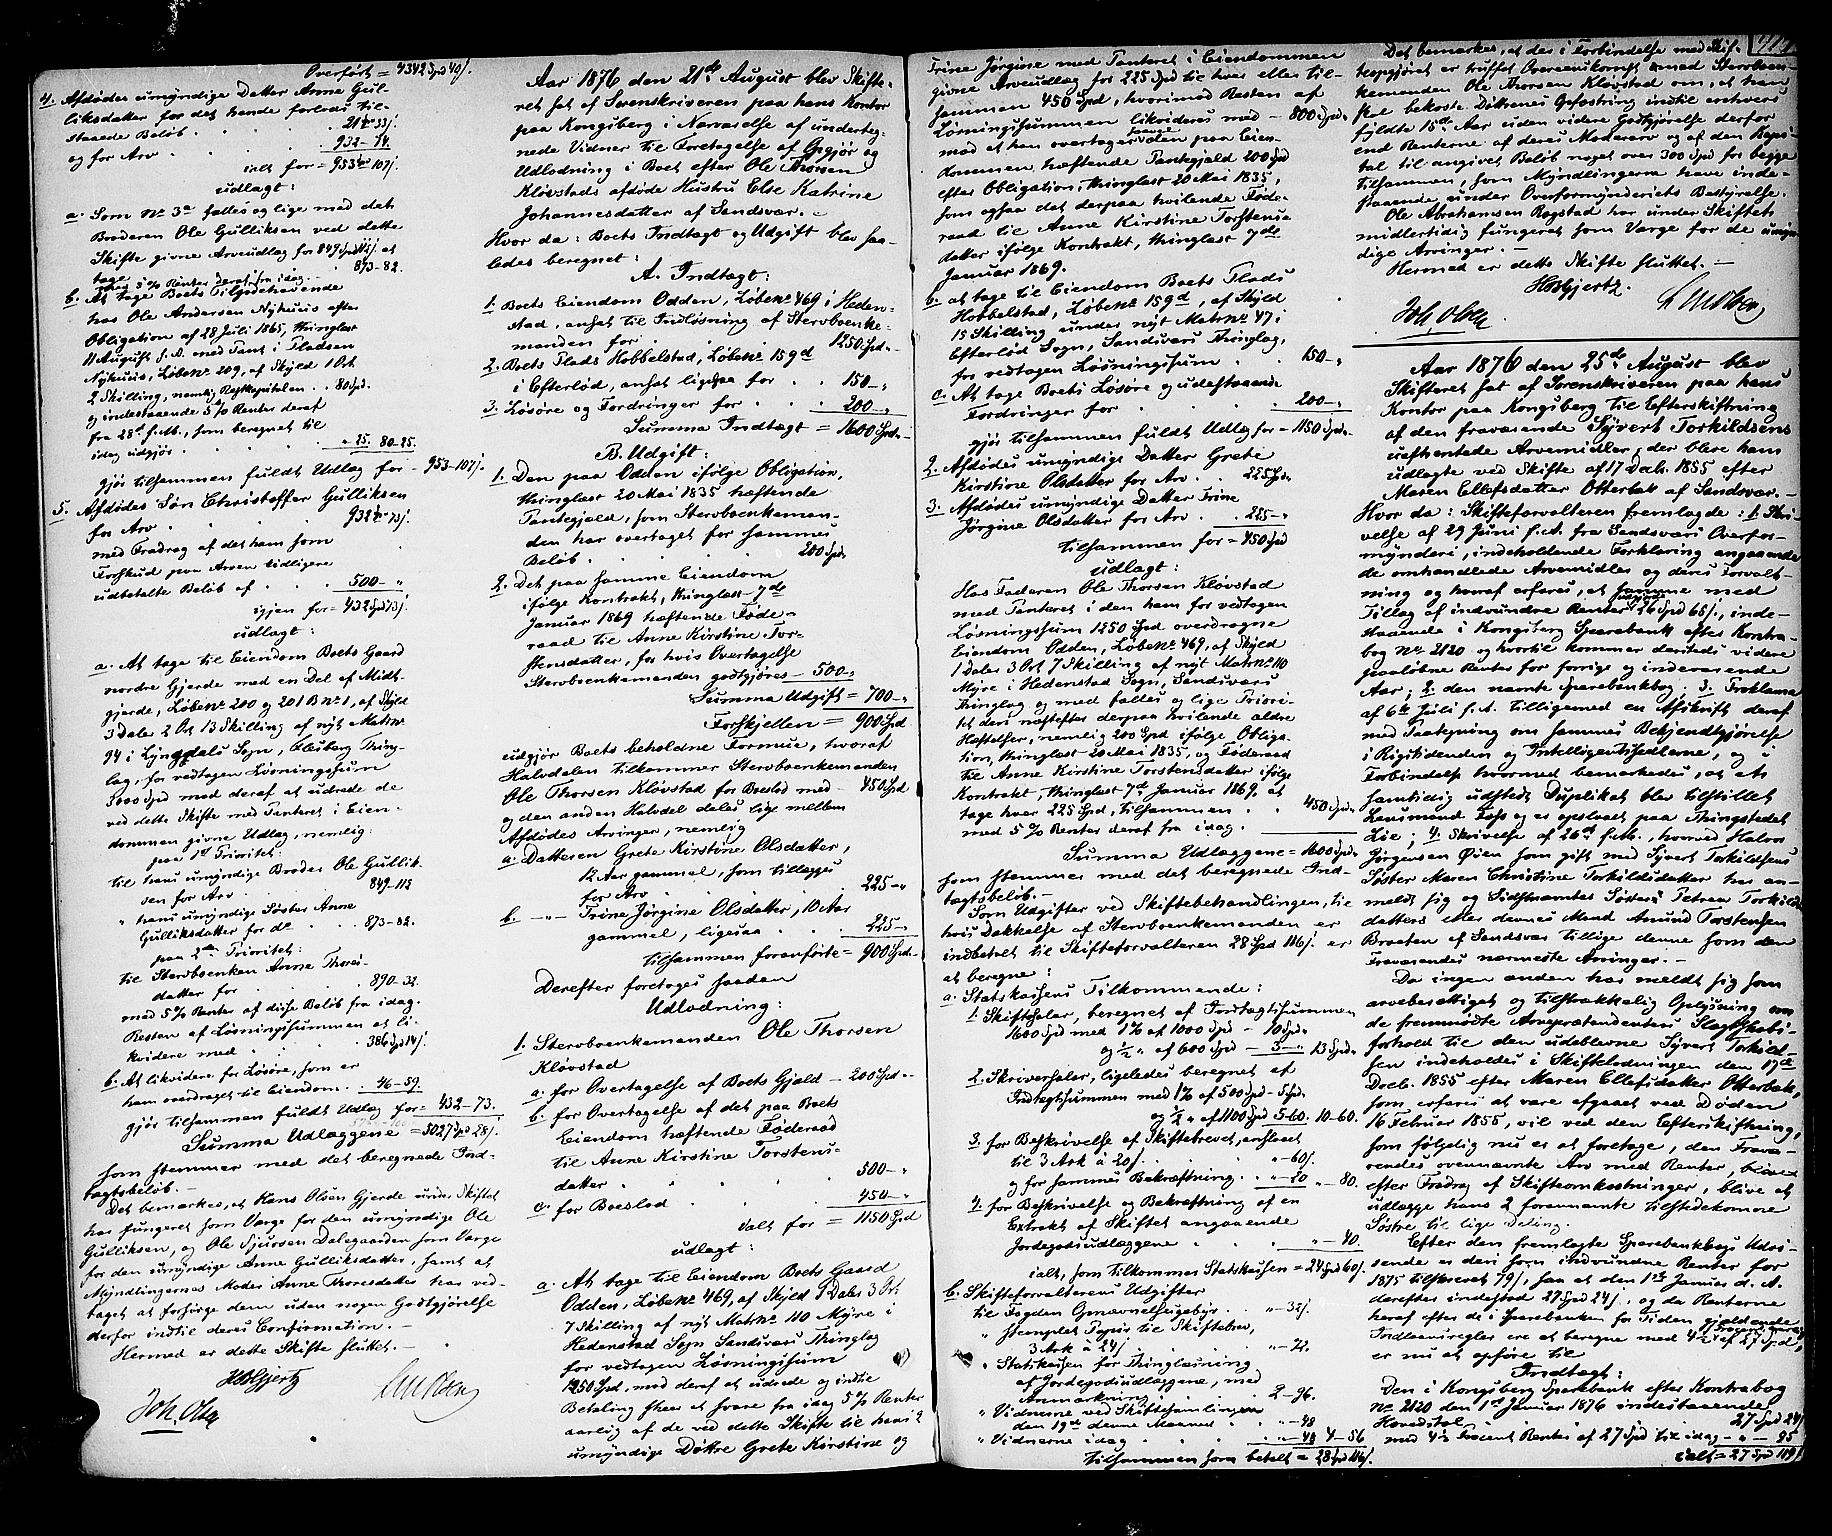 Overført = 4342 Spd 40 /.
4. Afdødes umyndige Datter Anne Gul-
liksdatter for det hende forlods til-
staaede Beløb . . . 21 " 33/.
og for Arv . . . 932 - 74.
ialt for = 953 " 107/.
udlagt:
a. Som No 3a fælles og lige med det
Broderen Ole Gulliksen ved dette
Skifte givne Arveudlag for 849 Spd 113/. at
tage . . 873-82.
med 5 % Renter deraf fra idag.
b. At tage Boets Tilgodehavende
hos Ole Andersen Nyhuus efter
Obligation af 28 Juli 1865, thinglæst
11 August s. A. med Pant i Pladsen
Nyhuus, Løbe No 209, af Skyld 1 Ort
2 Skilling, nemlig Restkapitalen . 80 Spd.
og indestaaende 5 % Renter deraf
fra 28de f. M., som beregnet til
idag udgjør . . " 25. 80-25.
gjør tilsammen fuldt Udlæg for - 953-107/.
5. Afdødes Søn Christoffer Gulliksen
for Arv . . . 932 " 73/.
med Fradrag af det ham som
Forskud paa Arven tidligere
udbetalte Beløb af . . 500 - "
igjen for = 432 Spd 73/.
udlagt:
a. At tage til Eiendom Boets Gaard
nordre Gjerde med en Del af Midt-
gjerde, Løbe No 200 og 201 B No 1, af Skyld
3 Daler 2 Ort 13 Skilling af nyt Matr No
94 i Lyngdals Sogn, Flesberg Thing-
lag, for vedtagen Løsningssum
3000 Spd mod deraf at udrede de
ved dette Skifte med Panteret i Eien-
dommen givne Udlæg, nemlig:
paa 1st Prioritet:
til hans umyndige Broder Ole Gullik-
sen for Arv . . 849-113
" hans umyndige Søster Anne
Gulliksdatter for do . . 873-82.
paa 2den Prioritet:
til Stervboenken Anne Thores-
datter for . . 890-32.
med 5 % Renter af disse Beløb fra idag.
Resten af Løsningssummen at li-
kvidere med . . 386 Spd 14/.
b. At likvidere for Løsøre, som er
ham overdraget til Eiendom . . 46-59.
gjør tilsammen fuldt Udlæg for = 432-73.
Summa Udlæggene = 5027 Spd 28/.
som stemmer med det beregnede Ind-
tægtsbeløb. -
Det bemærkes, at Hans Olsen Gjerde under Skiftet
har fungeret som Værge for den umyndige Ole
Gulliksen, og Ole Sjursen Dalegaarden som Værge
for den umyndige Anne Gulliksdatter, samt at
Myndlingernes Moder Anne Thoresdatter har ved-
taget at forsørge dem uden nogen Godtgjørelse
derfor indtil deres Confirmation. -
Hermed er dette Skifte sluttet. -
Joh. Olsen
Aar 1876 den 21de August blev Skifte-
ret sat af Sorenskriveren paa hans Kontor
paa Kongsberg i Nærværelse af underteg-
nede Vidner til Foretagelse af Opgjør og
Udlodning i Boet efter Ole Thorsen
Kløvstads afdøde Hustru Else Katrine
Johannesdatter af Sandsvær. -
Hvor da: Boets Indtægt og Udgift blev saa-
ledes beregnet:
A. Indtægt:
1. Boets Eiendom Odden, Løbe No 469 i Heden-
stad, ansat til Indløsning af Stervboenke-
manden for . . 1250 Spd. "
2. Boets Plads Hobbelstad, Løbe No 159d
i Efterlød, ansat ligesaa for . . 150 - "
3. Løsøre og Fordringer for . . 200 - "
Summa Indtægt = 1600 Spd. "
B. Udgift:
1. Den paa Odden ifølge Obligation,
thinglæst 20 Mai 1835 hæftende
Pantegjæld, som Stervboenkeman-
den har overtaget for sammes
Beløb . . . 200 Spd.
2. Det paa samme Eiendom
ifølge Kontrakt, thinglæst 7de
Januar 1869 hæftende Føde-
raad til Anne Kirstine Tor-
stensdatter, for hvis Overtagelse
Stervboenkemanden godtgjøres - 500 - "
Summa Udgift = 700 - "
Forskjellen = 900 Spd
udgjør Boets beholdne Formue, hvoraf
Halvdelen tilkommer Stervboenkemanden
Ole Thorsen Kløvstad for Boeslod med - 450 Spd
og den anden Halvdel deles lige mellem
Afdødes Arvinger, nemlig
a. Datteren Grete Kirstine Olsdatter,
12 Aar gammel, som tillægges
for Arv . . . 225 - "
b. - " - Trine Jørgine Olsdatter, 10 Aar
gammel, ligesaa . . 225 - "
tilsammen foranførte = 900 Spd. "
Derefter foretoges saadan
Udlodning:
1. Stervboenkemanden Ole Thorsen
Kløvstad
a. for Overtagelse af Boets Gjæld - 200 Spd. "
b. for Overtagelse af det paa Boets
Eiendom hæftende Føderaad
til Anne Kirstine Torstens-
datter . . . 500 - "
c. for Boeslod . . 450 - "
ialt for = 1150 Spd
udlagt:
a. At tage til Eiendom Boets Gaard
Odden, Løbe No 469, af Skyld 1 Daler 3 Ort
7 Skilling af nyt Matr No 110 Myre i
Hedenstad Sogn Sandsværs Thinglag
for vedtagen Løsningssum
1250 Spd, mod deraf at udrede og indtil
Betaling skeer at svare fra idag 5 % Renter
aarlig af de ved dette Skifte til hans 2
umyndige Døttre Grete Kirstine og
Trine Jørgine med Panteret i Eiendommen
givne Arveudlæg for 225 Spd til hver eller til-
sammen 450 Spd, hvorimod Resten af
Løsningssummen likvideres med - 800 Spd. "
mod at han overtager saavel den paa Eien-
dommen hæftende Pantegjæld 200 Spd
efter Obligation, thinglæst 20 Mai 1835,
som ogsaa det derpaa hvilende Føde-
raad til Anne Kirstine Torstens-
datter ifølge Kontrakt, thinglæst 7de
Januar 1869.
b. at tage til Eiendom Boets Plads
Hobbelstad, Løbe No 159d, af Skyld
15 Skilling under nyt Matr No 47 i
Efterlød Sogn, Sandsværs Thinglag,
for vedtagen Løsningssum . . 150 - "
c. At tage Boets Løsøre og udestaaende
Fordringer for . . . 200 - "
gjør tilsammen fuldt Udlæg for = 1150 Spd. "
2. Afdødes umyndige Datter Grete
Kirstine Olsdatter for Arv . . 225 Spd.
3. Afdødes umyndige Datter Trine
Jørgine Olsdatter for Arv . . 225 - "
tilsammen for = 450 Spd
udlagt:
Hos Faderen Ole Thorsen Kløvstad
med Panteret i den ham for vedtagen
Løsningssum 1250 Spd overdragne
Eiendom Odden, Løbe No 469, af Skyld
1 Daler 3 Ort 7 Skilling af nyt Matr No 110
Myre i Hedenstad Sogn, Sandsværs
Thinglag og med fælles og lige Priori-
tet den næstefter derpaa hvilende ældre
Hæftelser, nemlig 200 Spd ifølge Obliga-
tion, thinglæst 20 Mai 1835, og Føderaad
til Anne Kirstine Torstensdatter ifølge
Kontrakt, thinglæst 7de Januar 1869, at
tage hver 225 Spd, tilsammen . . 450 Spd. "
med 5 % Renter deraf fra idag.
Summa Udlæggene = 1600 Spd. "
som stemmer med det beregnede Ind-
tægtsbeløb. -
Som Udgifter ved Skiftebehandlingen, til
hvis Dækkelse af Stervboenkemanden er
indbetalt til Skifteforvalteren 28 Spd 116/. er
at beregne:
a. Statskassens Tilkommende:
1. Skiftesalær, beregnet af Indtægtssummen
1600 Spd med 1 % af 1000 Spd - 10 Spd. "
og ½ " af 600 Spd - 3 - " 13 Spd. "
2. Skriversalær, ligeledes beregnet af
Indtægtssummen med 1 % af 500 Spd - 5 Spd.
og ½ " af 1100 Spd 5-60. 10-60.
3. for Beskrivelse af Skiftebrevet, anslaaet
til 3 Ark à 20/. . . " - 60/.
og for sammes Bekræftning . . " - 20 " - 80.
4. for Beskrivelse og Bekræftning af en
Extrakt af Skiftet angaaende
Jordegodsudlæggene . . . " - 40.
ialt, som tilkommer Statskassen = 24 Spd 60/.
b. Skifteforvalterens Udgifter
til Fogden Opnævnelsesgebyr . . " - 32/.
" stemplet Papir til Skiftebrev,
3 Ark à 24/. . . . " - 72.
" Statskassen for Thinglæsning
af Jordegodsudlæggene, med
Anmærkning . . . 2-96.
" Vidnerne ved Skiftesamlingen
den 19de denne Maaned . . " - 48
" Vidnerne idag . . . " - 48 4-56
tilsammen som betalt = 28 Spd 116/.
Det bemærkes, at der i Forbindelse med Skif-
teopgjøret er truffet Overeenskomst med Stervboen-
kemanden Ole Thorsen Kløvstad om, at han
skal bekoste Døttrenes Opfostring indtil enhvers
fyldte 15de Aar uden videre Godtgjørelse derfor
end Renterne af deres Mødrearv og af den Kapi-
tal til angivet Beløb noget over 300 Spd for begge
tilsammen, som Myndlingerne have inde-
staaende under Overformynderiets Bestyrelse.
Ole Abrahamsen Rogstad har under Skiftet
midlertidig fungeret som Værge for de umyn-
dige Arvinger. -
Hermed er dette Skifte sluttet. -
Joh. Olsen
Aar 1876 den 25de August blev
Skifteret sat af Sorenskriveren paa hans
Kontor paa Kongsberg til Efterskiftning
af den fraværende Syvert Torkildsens
uafhentede Arvemidler, der bleve ham
udlagte ved Skifte af 17 Decb. 1855 efter
Maren Ellefsdatter Otterbæk af Sandsvær. -
Hvor da: Skifteforvalteren fremlagde: 1. Skri-
velse af 29 Juni s. A. fra Sandsværs Overfor-
mynderi, indeholdende Forklaring angaaende
de omhandlede Arvemidler og deres Forvalt-
ning og hvoraf erfares, at samme med
Tillæg af indvundne Renter udgjør 26 Spd 65/., inde-
staaende i Kongsberg Sparebank efter Kontra-
bog No 2120 og hvortil kommer derstods videre
paaløbne Renter for forrige og indeværende
Aar; 2. den nævnte Sparebankbog; 3. Proklama
af 6te Juli s. A. tilligemed en Afskrift deraf
med Paategning om sammes Bekjendtgjørelse
i Rigstidenden og Intelligentssedlerne, og i
Forbindelse hvormed bemærkedes, at et
samtidig udstedt Duplikat blev tilstillet
Lensmand Foss og er opslaaet paa Thingstedet
Lie; 4. Skrivelse af 26de f. M., hvorved Halvor
Jørgensen Øien som gift med Syvert Torkildsens
Søster Maren Christine Torkildsdatter har an-
meldt sig og Sidstnævntes Søster Petrea Torkilds-
datters eller dennes Mand Amund Torstensen
Braaten af Sandsvær tillige denne som den
Fraværendes nærmeste Arvinger. -
Da ingen anden har meldt sig som
arveberettiget og tilstrækkelig Oplysning om
de fremmødte Arveprætendenters Slægtskabs-
forhold til den udeblevne Syvert Torkild-
sen indeholdes i Skifteslutningen den 17de
Decb. 1855 efter Maren Ellefsdatter Otterbæk,
som erfares at være afgaaet ved Døden
16 Februar 1855, vil ved den Efterskiftning,
som følgelig nu er at foretage, den Fravæ-
rendes ovennævnte Arv med Renter, blive
efter Fradrag af Skifteomkostninger, blive at
udlægge hans 2 forannævnte tilstedekomne
Søstre til lige Deling.
Efter den fremlagte Sparebankbogs Udvi-
sende er den som indvundne Renter for
1875 tilskrevet 79/., saa at den 1ste Januar d. A.
derefter indestod 27 Spd 24/., og da Renterne
heraf efter de i Sparebanken for Tiden gjældende
Indlaansregler ere at beregne med 4½ % af 27 Spd,
er nu at opføre til
Indtægt:
Den i Kongsberg Sparebank efter Kontrabog
No 2120 den 1ste Januar 1876 indestaaende
Hovedstol . . . 27 Spd 24/.
med 4½ Procent Renter af 27 Spd til idag - " - 95
ialt = 27 Spd 119/.